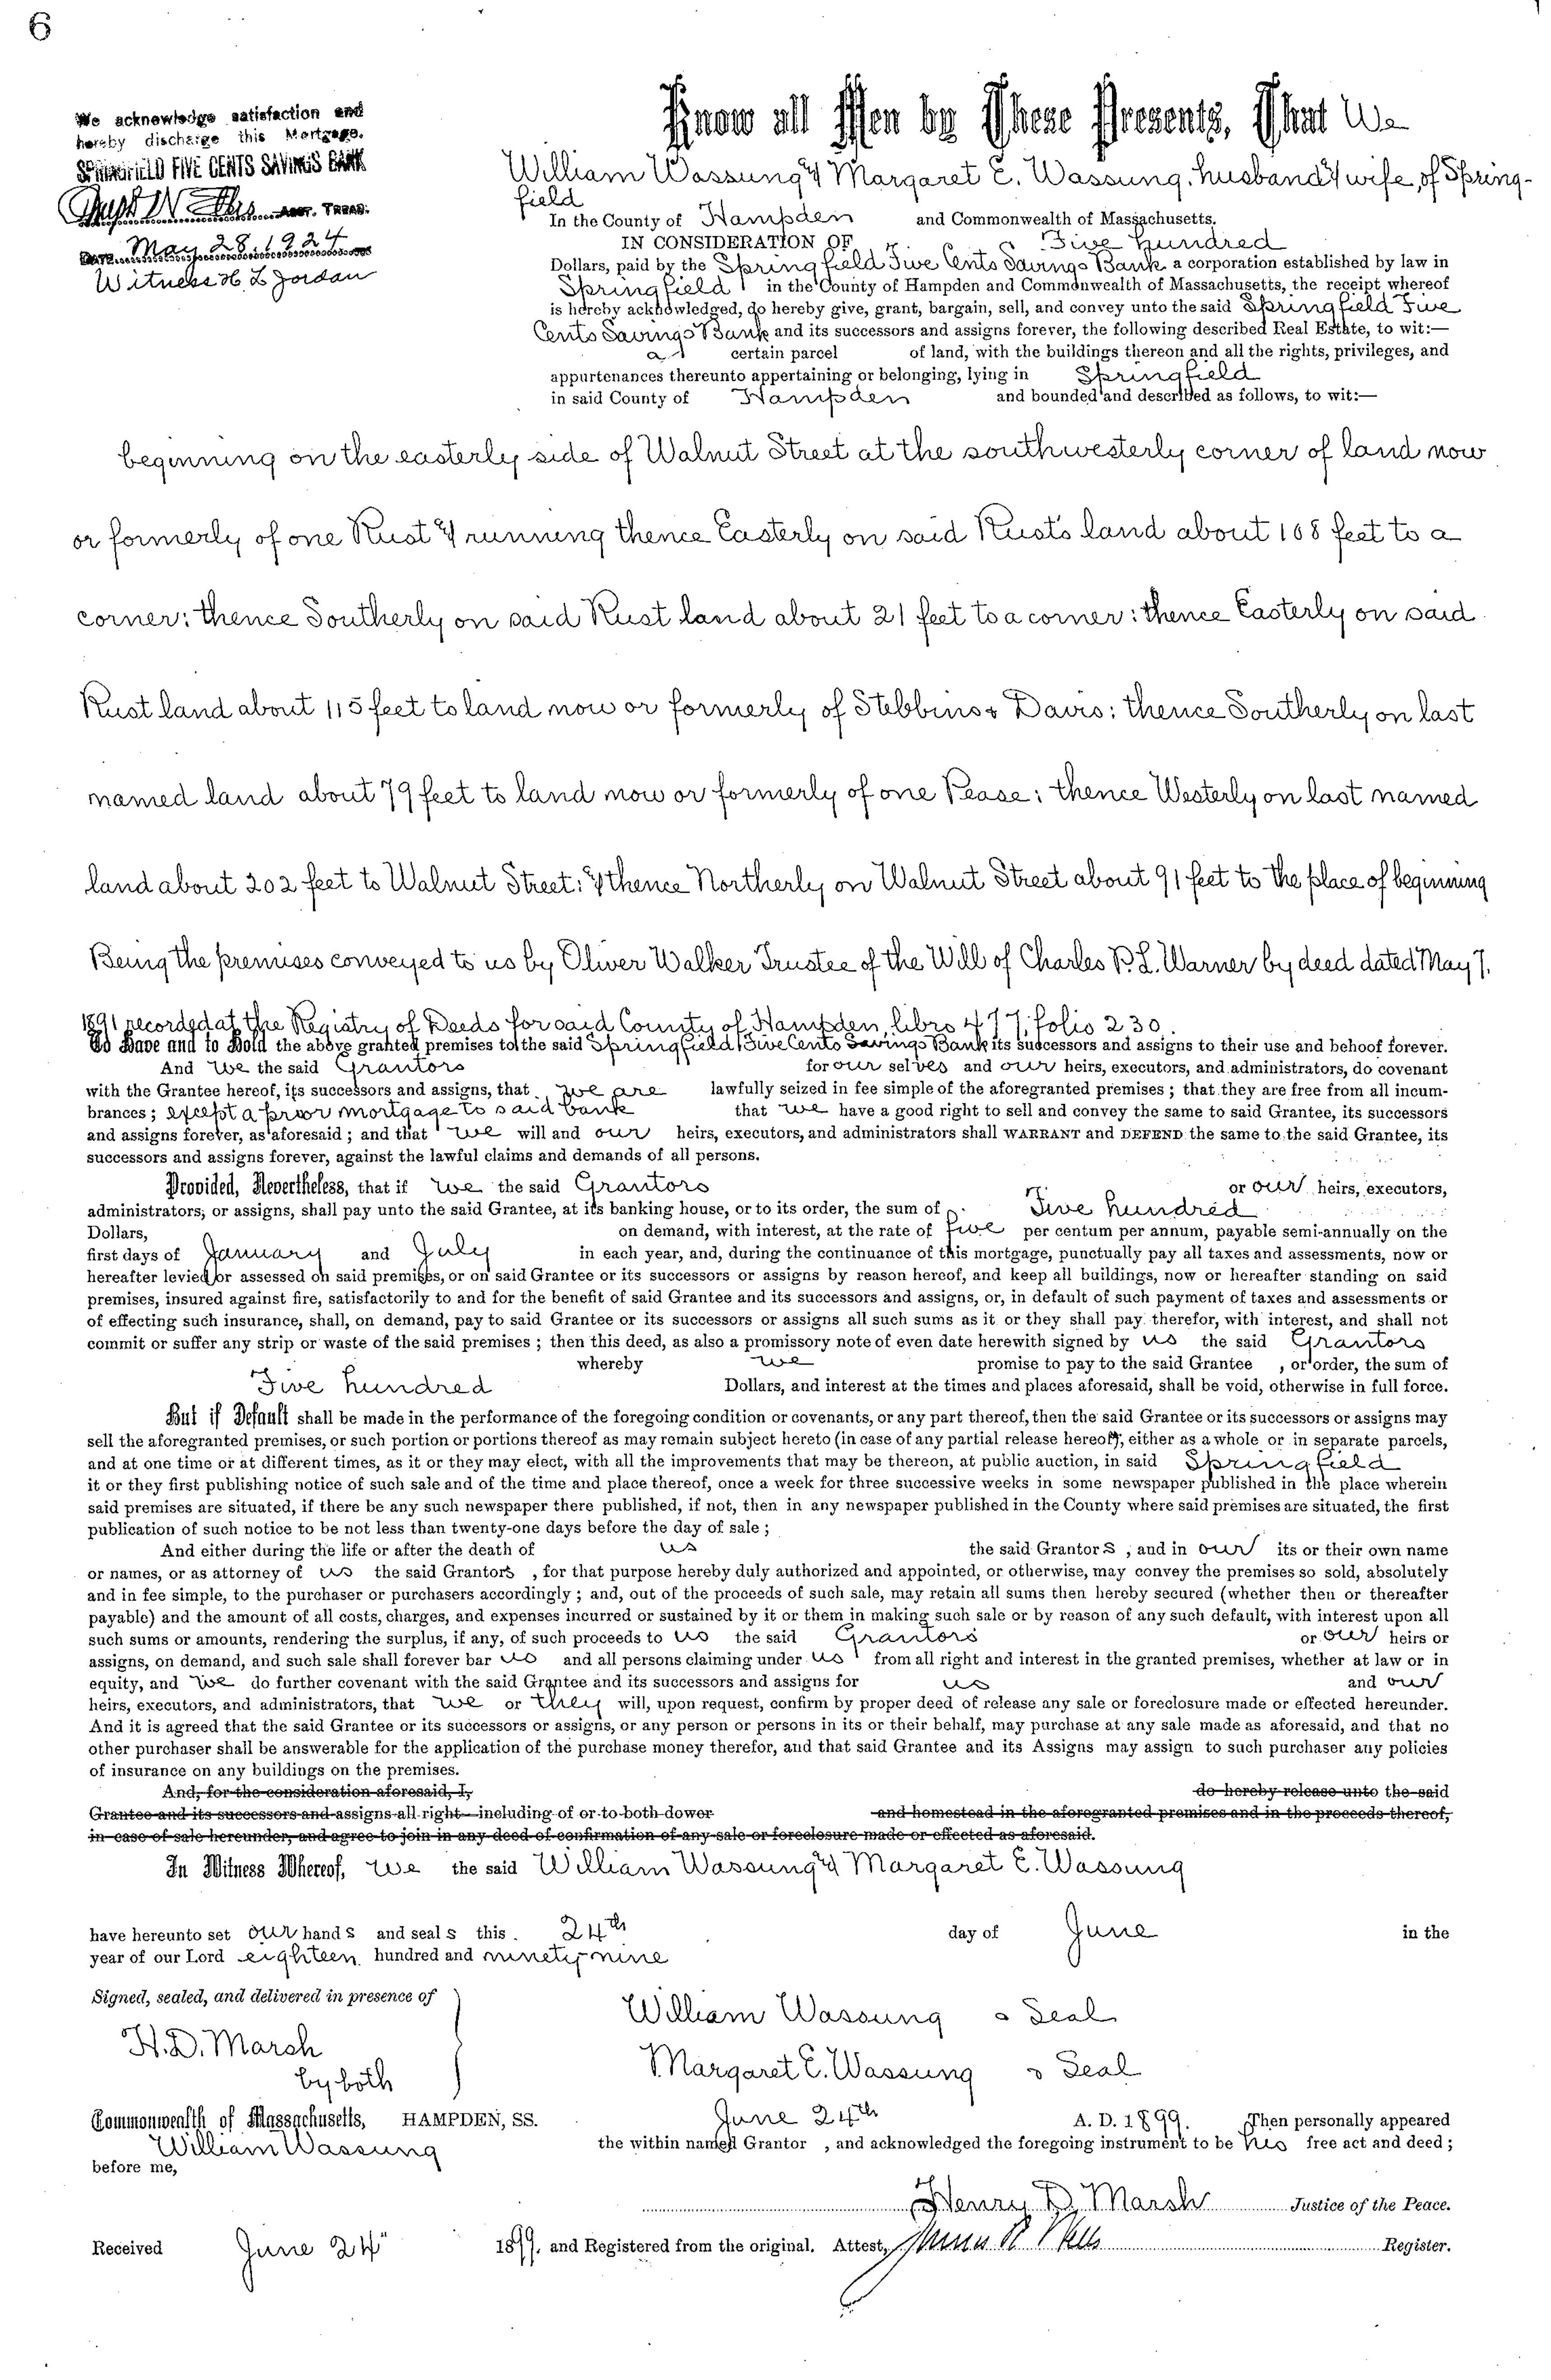 6
We acknowledge satisfaction and
hereby discharge this Mortgage.
SPRINGFIELD FIVE CENTS SAVINGS BANK
Asst. Treas.
Date May 28, 1924
Witness H. L. Jordan
Know all Men by These Presents, That We
William Wassung & Margaret E. Wassung, husband & wife, of Spring-
field
In the County of Hampden and Commonwealth of Massachusetts.
IN CONSIDERATION OF Five hundred
Dollars, paid by the Springfield Five Cents Savings Bank a corporation established by law in
Springfield in the County of Hampden and Commonwealth of Massachusetts, the receipt whereof
is hereby acknowledged, do hereby give, grant, bargain, sell, and convey unto the said Springfield Five
Cents Savings Bank and its successors and assigns forever, the following described Real Estate, to wit:—
a certain parcel of land, with the buildings thereon and all the rights, privileges, and
appurtenances thereunto appertaining or belonging, lying in Springfield
in said County of Hampden and bounded and described as follows, to wit:—
beginning on the easterly side of Walnut Street at the southwesterly corner of land now
or formerly of one Rust & running thence Easterly on said Rust's land about 108 feet to a
corner: thence Southerly on said Rust land about 21 feet to a corner: thence Easterly on said
Rust land about 115 feet to land now or formerly of Stebbins & Davis: thence Southerly on last
named land about 79 feet to land now or formerly of one Pease: thence Westerly on last named
land about 202 feet to Walnut Street: & thence Northerly on Walnut Street about 91 feet to the place of beginning
Being the premises conveyed to us by Oliver Walker Trustee of the Will of Charles P. L. Warner by deed dated May 7,
1891 recorded at the Registry of Deeds for said County of Hampden, libro 477, folio 230.
To Have and to Hold the above granted premises to the said Springfield Five Cents Savings Bank its successors and assigns to their use and behoof forever.
And We the said Grantors for our selves and our heirs, executors, and administrators, do covenant
with the Grantee hereof, its successors and assigns, that we are lawfully seized in fee simple of the aforegranted premises; that they are free from all incum-
brances; except a prior mortgage to said bank that we have a good right to sell and convey the same to said Grantee, its successors
and assigns forever, as aforesaid; and that we will and our heirs, executors, and administrators shall WARRANT and DEFEND the same to the said Grantee, its
successors and assigns forever, against the lawful claims and demands of all persons.
Provided, Nevertheless, that if we the said Grantors or our heirs, executors,
administrators, or assigns, shall pay unto the said Grantee, at its banking house, or to its order, the sum of Five hundred
Dollars, on demand, with interest, at the rate of five per centum per annum, payable semi-annually on the
first days of January and July in each year, and, during the continuance of this mortgage, punctually pay all taxes and assessments, now or
hereafter levied or assessed on said premises, or on said Grantee or its successors or assigns by reason hereof, and keep all buildings, now or hereafter standing on said
premises, insured against fire, satisfactorily to and for the benefit of said Grantee and its successors and assigns, or, in default of such payment of taxes and assessments or
of effecting such insurance, shall, on demand, pay to said Grantee or its successors or assigns all such sums as it or they shall pay therefor, with interest, and shall not
commit or suffer any strip or waste of the said premises; then this deed, as also a promissory note of even date herewith signed by us the said Grantors
whereby we promise to pay to the said Grantee , or order, the sum of
Five hundred Dollars, and interest at the times and places aforesaid, shall be void, otherwise in full force.
But if Default shall be made in the performance of the foregoing condition or covenants, or any part thereof, then the said Grantee or its successors or assigns may
sell the aforegranted premises, or such portion or portions thereof as may remain subject hereto (in case of any partial release hereof), either as a whole or in separate parcels,
and at one time or at different times, as it or they may elect, with all the improvements that may be thereon, at public auction, in said Springfield
it or they first publishing notice of such sale and of the time and place thereof, once a week for three successive weeks in some newspaper published in the place wherein
said premises are situated, if there be any such newspaper there published, if not, then in any newspaper published in the County where said premises are situated, the first
publication of such notice to be not less than twenty-one days before the day of sale;
And either during the life or after the death of us the said Grantors , and in our its or their own name
or names, or as attorney of us the said Grantors , for that purpose hereby duly authorized and appointed, or otherwise, may convey the premises so sold, absolutely
and in fee simple, to the purchaser or purchasers accordingly; and, out of the proceeds of such sale, may retain all sums then hereby secured (whether then or thereafter
payable) and the amount of all costs, charges, and expenses incurred or sustained by it or them in making such sale or by reason of any such default, with interest upon all
such sums or amounts, rendering the surplus, if any, of such proceeds to us the said Grantors or our heirs or
assigns, on demand, and such sale shall forever bar us and all persons claiming under us from all right and interest in the granted premises, whether at law or in
equity, and we do further covenant with the said Grantee and its successors and assigns for us and our
heirs, executors, and administrators, that we or they will, upon request, confirm by proper deed of release any sale or foreclosure made or effected hereunder.
And it is agreed that the said Grantee or its successors or assigns, or any person or persons in its or their behalf, may purchase at any sale made as aforesaid, and that no
other purchaser shall be answerable for the application of the purchase money therefor, and that said Grantee and its Assigns may assign to such purchaser any policies
of insurance on any buildings on the premises.
And, for the consideration aforesaid, I, do hereby release unto the said
Grantee and its successors and assigns all right including of or to both dower and homestead in the aforegranted premises and in the proceeds thereof,
in case of sale hereunder, and agree to join in any deed of confirmation of any sale or foreclosure made or effected as aforesaid.
In Witness Whereof, we the said William Wassung & Margaret E. Wassung
have hereunto set our hands and seals this 24th day of June in the
year of our Lord eighteen hundred and ninety-nine
Signed, sealed, and delivered in presence of
H. D. Marsh
by both
William Wassung Seal
Margaret E. Wassung Seal
Commonwealth of Massachusetts, HAMPDEN, SS. June 24th A. D. 1899. Then personally appeared
William Wassung the within named Grantor , and acknowledged the foregoing instrument to be his free act and deed;
before me,
Henry D. Marsh Justice of the Peace.
Received June 24" 1899. and Registered from the original. Attest, Register.